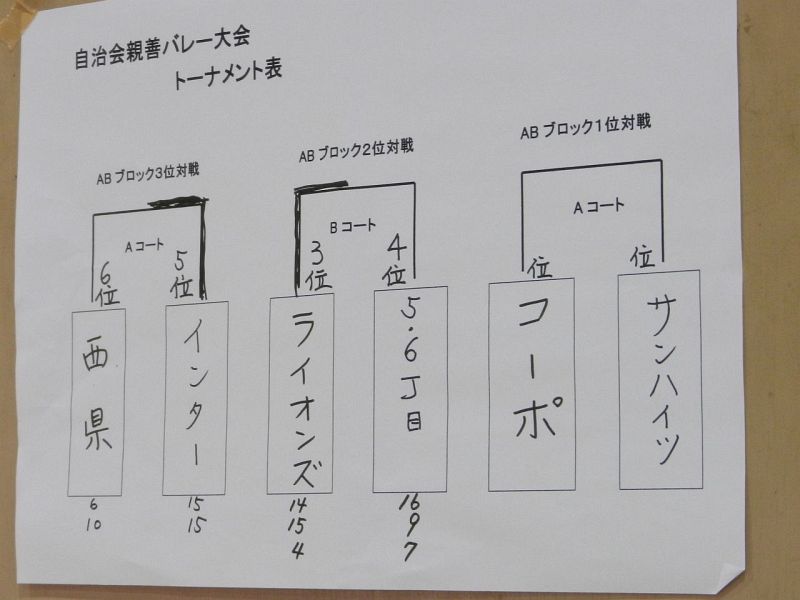 自治会親善バレー大会
トーナメント表
ABブロック3位対戦
Aコート
6位
5位
西県
インター
6
10
15
15
ABブロック2位対戦
Bコート
3位
4位
ライオンズ
5.6丁目
14
15
4
16
9
7
ABブロック1位対戦
Aコート
位
位
コーポ
サンハイツ